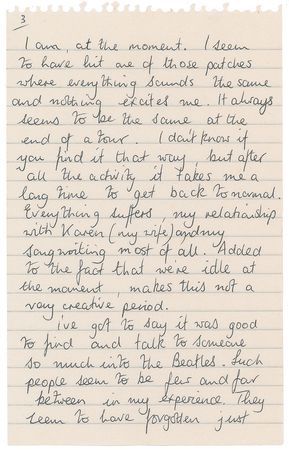 3
I am, at the moment. I seem
to have hit one of those patches
where everything sounds the same
and nothing excites me. It always
seems to be the same at the
end of a tour. I don't know if
you find it that way, but after
all the activity it takes me a
long time to get back to normal.
Everything suffers, my relationship
with Karen (my wife) and my
songwriting most of all. Added
to the fact that we're idle at
the moment, makes this not a
very creative period.
i've got to say it was good
to find and talk to someone
so much into the Beatles. Such
people seem to be few and far
between in my experience. They
seem to have forgotten just